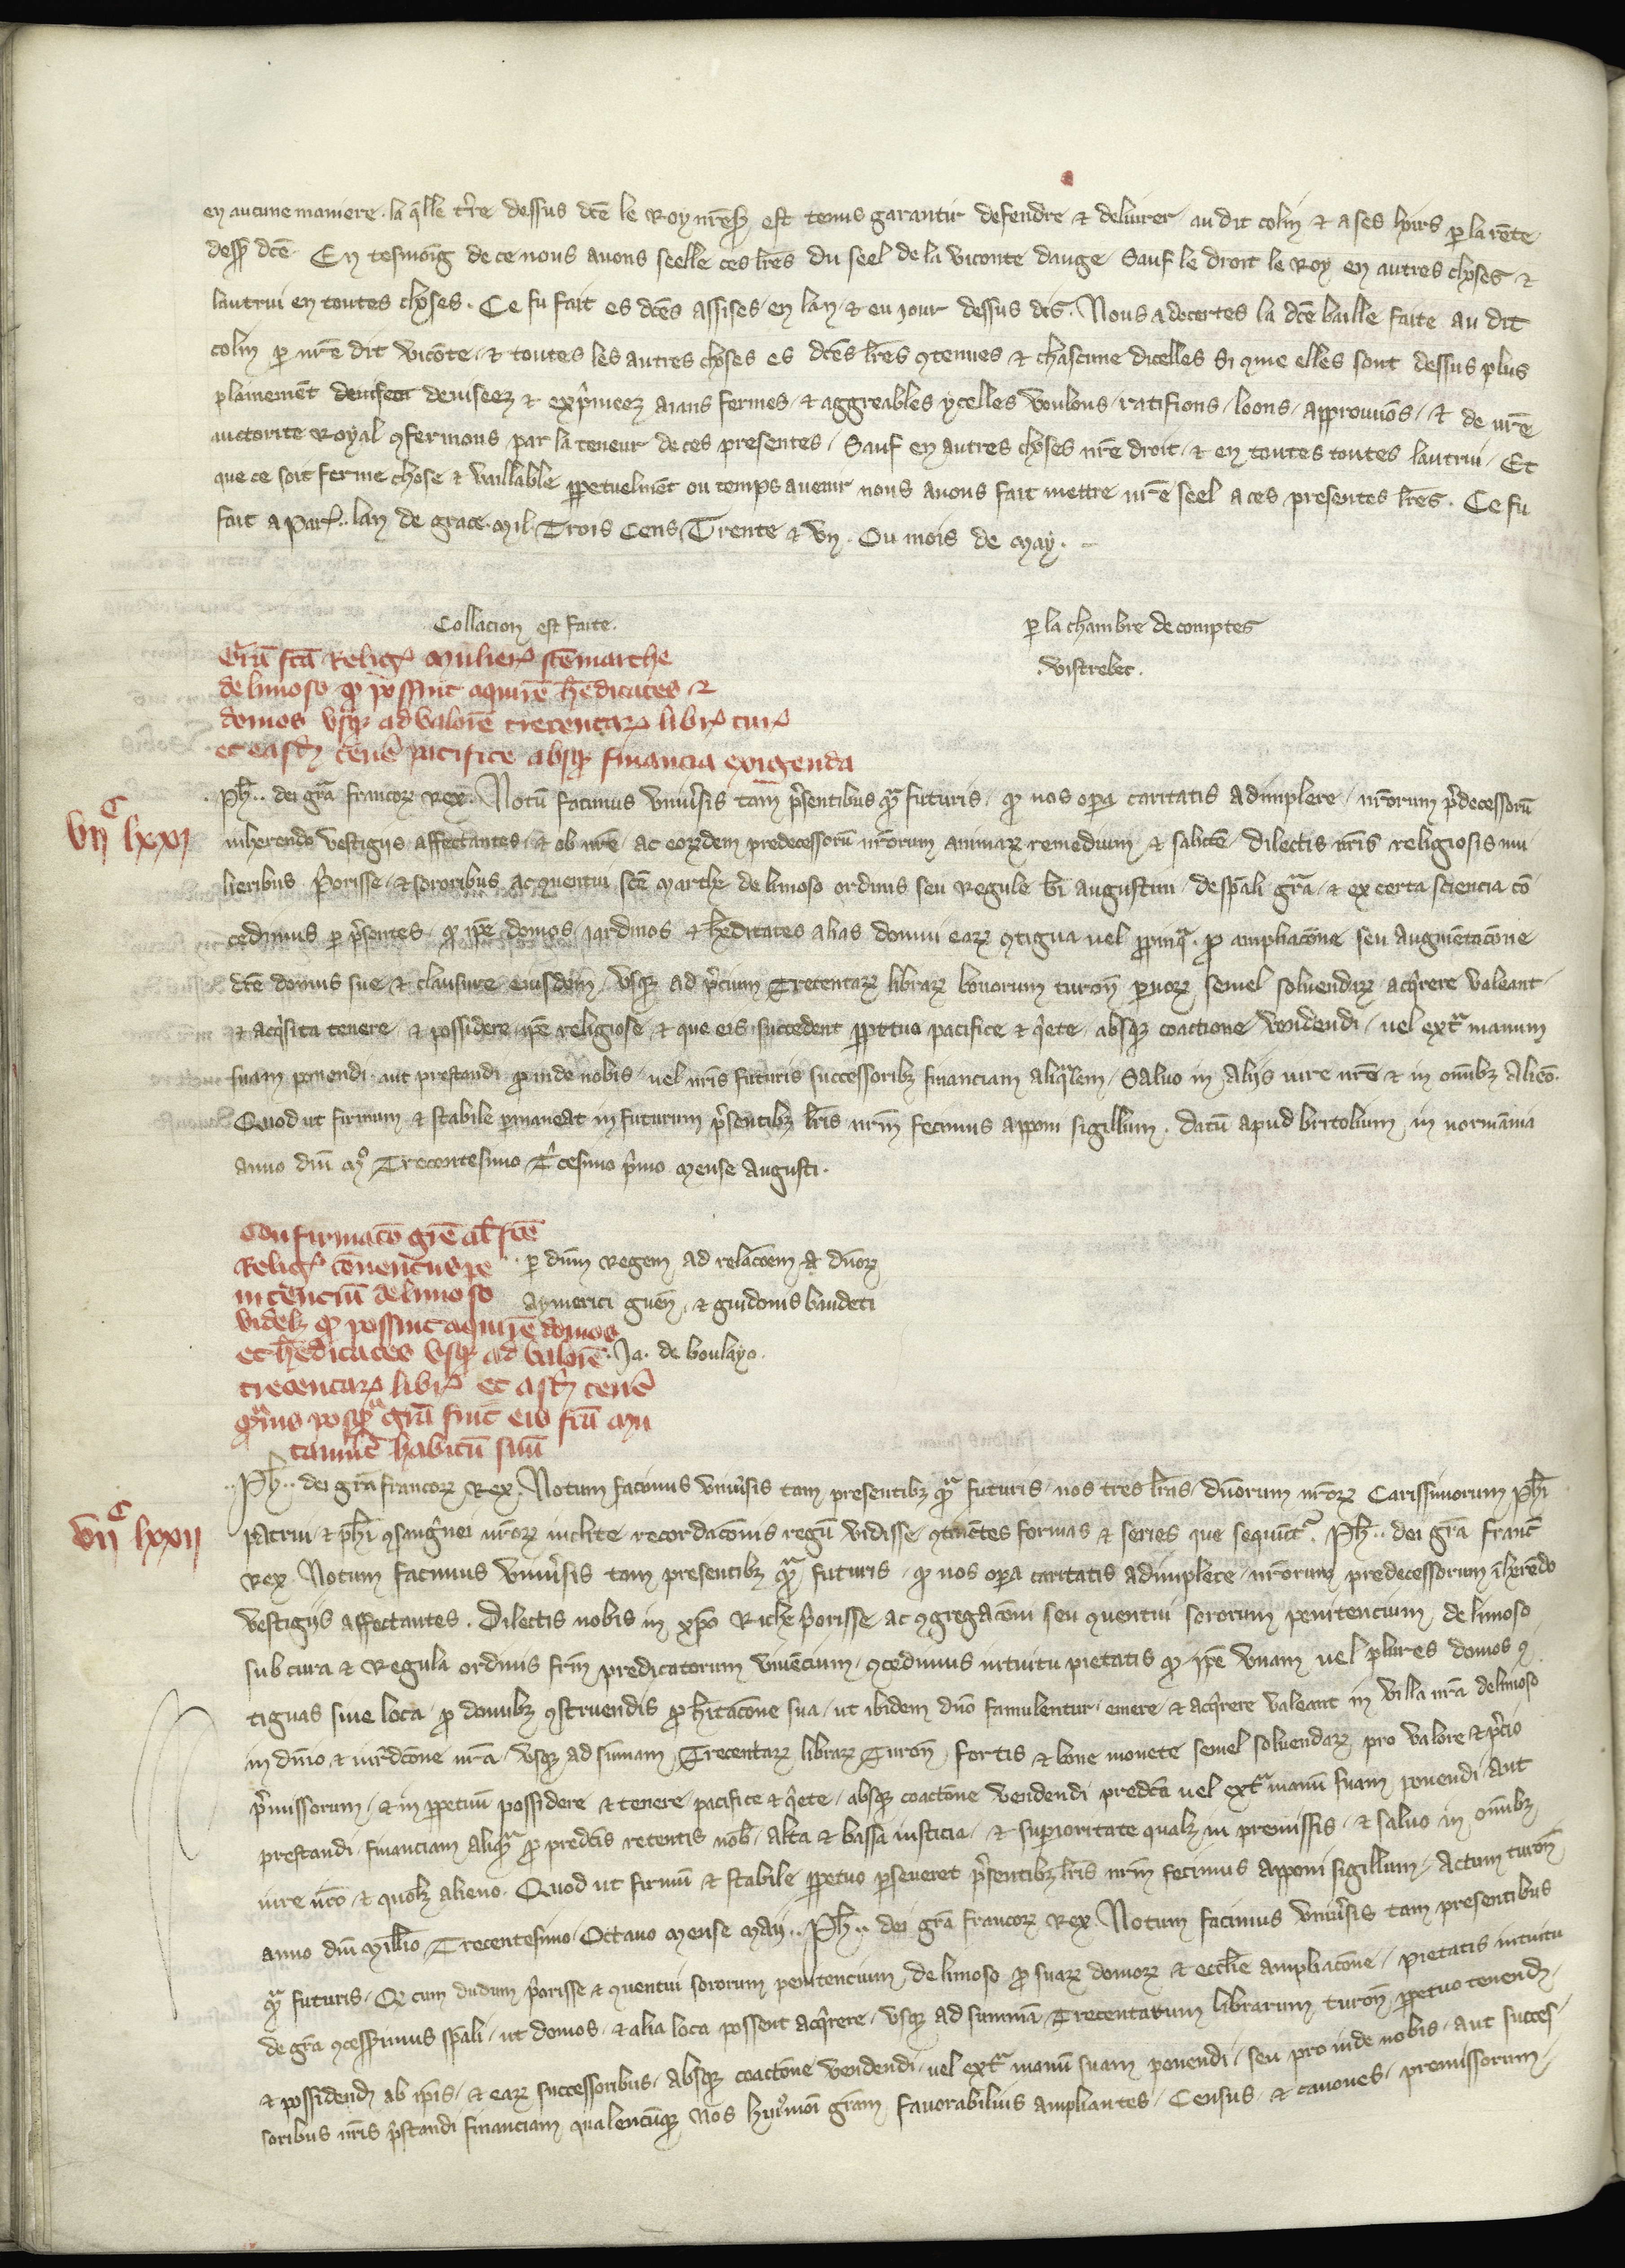 en aucune maniere. la qlle tre dessus dce le Roy nres est tenus garantir defendre & deliurer au dit colin & a ses hoirs p la rente
dessus dce. En tesmoing de ce nous auons seelle ces lres du seel de la viconte dauge Sauf le droit le Roy en autres choses &
lautrui en toutes choses. Ce fu fait es dces assises en lan & ou jour dessus dis. Nous adecertes la dce baille faite au dit
colin p nre dit viconte, & toutes les autres choses es dces lres 9tenues & chascune dicelles si 9me elles sont dessus plus
plainement deuiseez & exprimeez aians fermes, & aggreables ycelles voulons, ratifions, loons, approuuons, & de nre
auctorite Royal 9fermons par la teneur de ces presentes, Sauf en autres choses nre droit, & en toutes toutes lautrui, Et
que ce soit ferme chose & vaillable ppetuelment ou temps auenir nous auons fait mettre nre seel a ces presentes lres. Ce fu
fait a Par. lan de grace. mil Trois Cens Trente & vn. Ou mois de may.
Collacion est faite.
p la chambre de comptes
vistrebec.
Gra fca Relig mulier sce marthe
de limoso q possint aquire heditates &
domos vsq ad valore trecentar libr tur
et easd tene pacifice absq financia exigenda
vij c lxxi
Ph.. dei gra francor Rex. Notu facimus vniuisis tam psentibus q futuris, q nos opa caritatis adimplere, nrorum pdecessoru
inherendo vestigijs affectantes, & ob nre ac eorudem predecessoru nrorum animar remedium & salute, dilectis nris religiosis mu
lieribus Priorisse, & sororibus ac 9uentui sce marthe de limoso ordinis seu Regule bi augustini, de spali gra, & ex certa sciencia co
cedimus p psentes, q ipe domos, jardinos & heditates alias domui ear 9tigua uel ppinq, p ampliacone seu augmetacone
dce domus sue & clausure eiusdem, vsq ad pcium Trecentar librar bonorum turon paruor semel soluendar acqrere valeant
& acqsita tenere & possidere ipe religiose & que eis succedent ppetuo pacifice & qete, absq coactione vendendi, uel ext manum
suam ponendi aut prestandi pinde nobis, uel nris futuris successorib financiam aliqlem, Saluo in alijs iure nro & in omib alieno.
Quod ut firmum & stabile pmaneat in futurum psentib lris nrm fecimus apponi sigillum. datu apud britolium in normania
anno dni mo Trecentesimo Tcesimo pmo mense augusti.
Confirmaco gre al fce
Relig couentus pe
nitenciu de limoso
videlz q possint aquire domos
et heditates vsq ad valore
trecentar libr et asd tene
pmus posq gra fuit eis fca mu
tauit habitu suu
p dnm Regem ad relacoem dnor
aymerici guen, & guidonis baudeti
Ja. de boulayo.
vij c lxxij
Ph.. dei gra francor Rex. Notum facimus vniuisis tam presentib q futuris, nos tres lras, dnorum nror Carissimorum phi
patrui, & phi 9sanguinei nror inclite recordaconis regu vidisse 9tinetes formas & series que sequnt. Ph.. dei gra franc
Rex Notum facimus vniuisis tam presentib q futuris, q nos opa caritatis adimplere, nrorum predecessorum iherendo
vestigijs affectantes. Dilectis nobis in xpo Riche Priorisse ac 9gregacioni seu 9uentui sororum penitencium, de limoso
sub cura & Regula ordinis frm predicatorum viuecium, 9cedimus intuitu pietatis q ipe vnam uel plures domos 9
tiguas siue loca, p domib 9struendis p hitacone sua, ut ibidem dno famulentur, emere & acqrere valeant in villa nra de limoso
in dnio & iurdicone nra vsq ad sumam Trecentar librar Turon fortis & bone monete semel soluendar pro valore & pcio
pmissorum, & in ppetuu possidere & tenere, pacifice & qete, absq coactone vendendi predca uel ext manu suam ponendi, aut
prestandi financiam aliq p predcis retentis nob, alta & bassa iusticia, & superioritate qualz in premissis, & saluo in omib
iure nro & quolz alieno. Quod ut firmu & stabile ppetuo pseueret psentib lris nrm fecimus apponi sigillum, Actum turon
anno dni millio Trecentesimo Octauo mense maij.. Ph.. dei gra francor Rex. Notum facimus vniuisis tam presentibus
q futuris, Q cum dudum Priorisse & 9uentui sororum penitencium, de limoso p suar domor & ecclie ampliacone, pietatis intuitu
de gra 9cesserimus spali, ut domos, & alia loca possent acqrere, vsq ad summa Trecentarum librarum turon ppetuo tenend
& possidend ab ipis, & ear successoribus, absq coactone vendendi, uel ext manu suam ponendi, seu pro inde nobis, aut succes
soribus nris pstandi financiam qualencuq Nos huiusmodi gram fauorabilius ampliantes, Census, & canones, premissorum